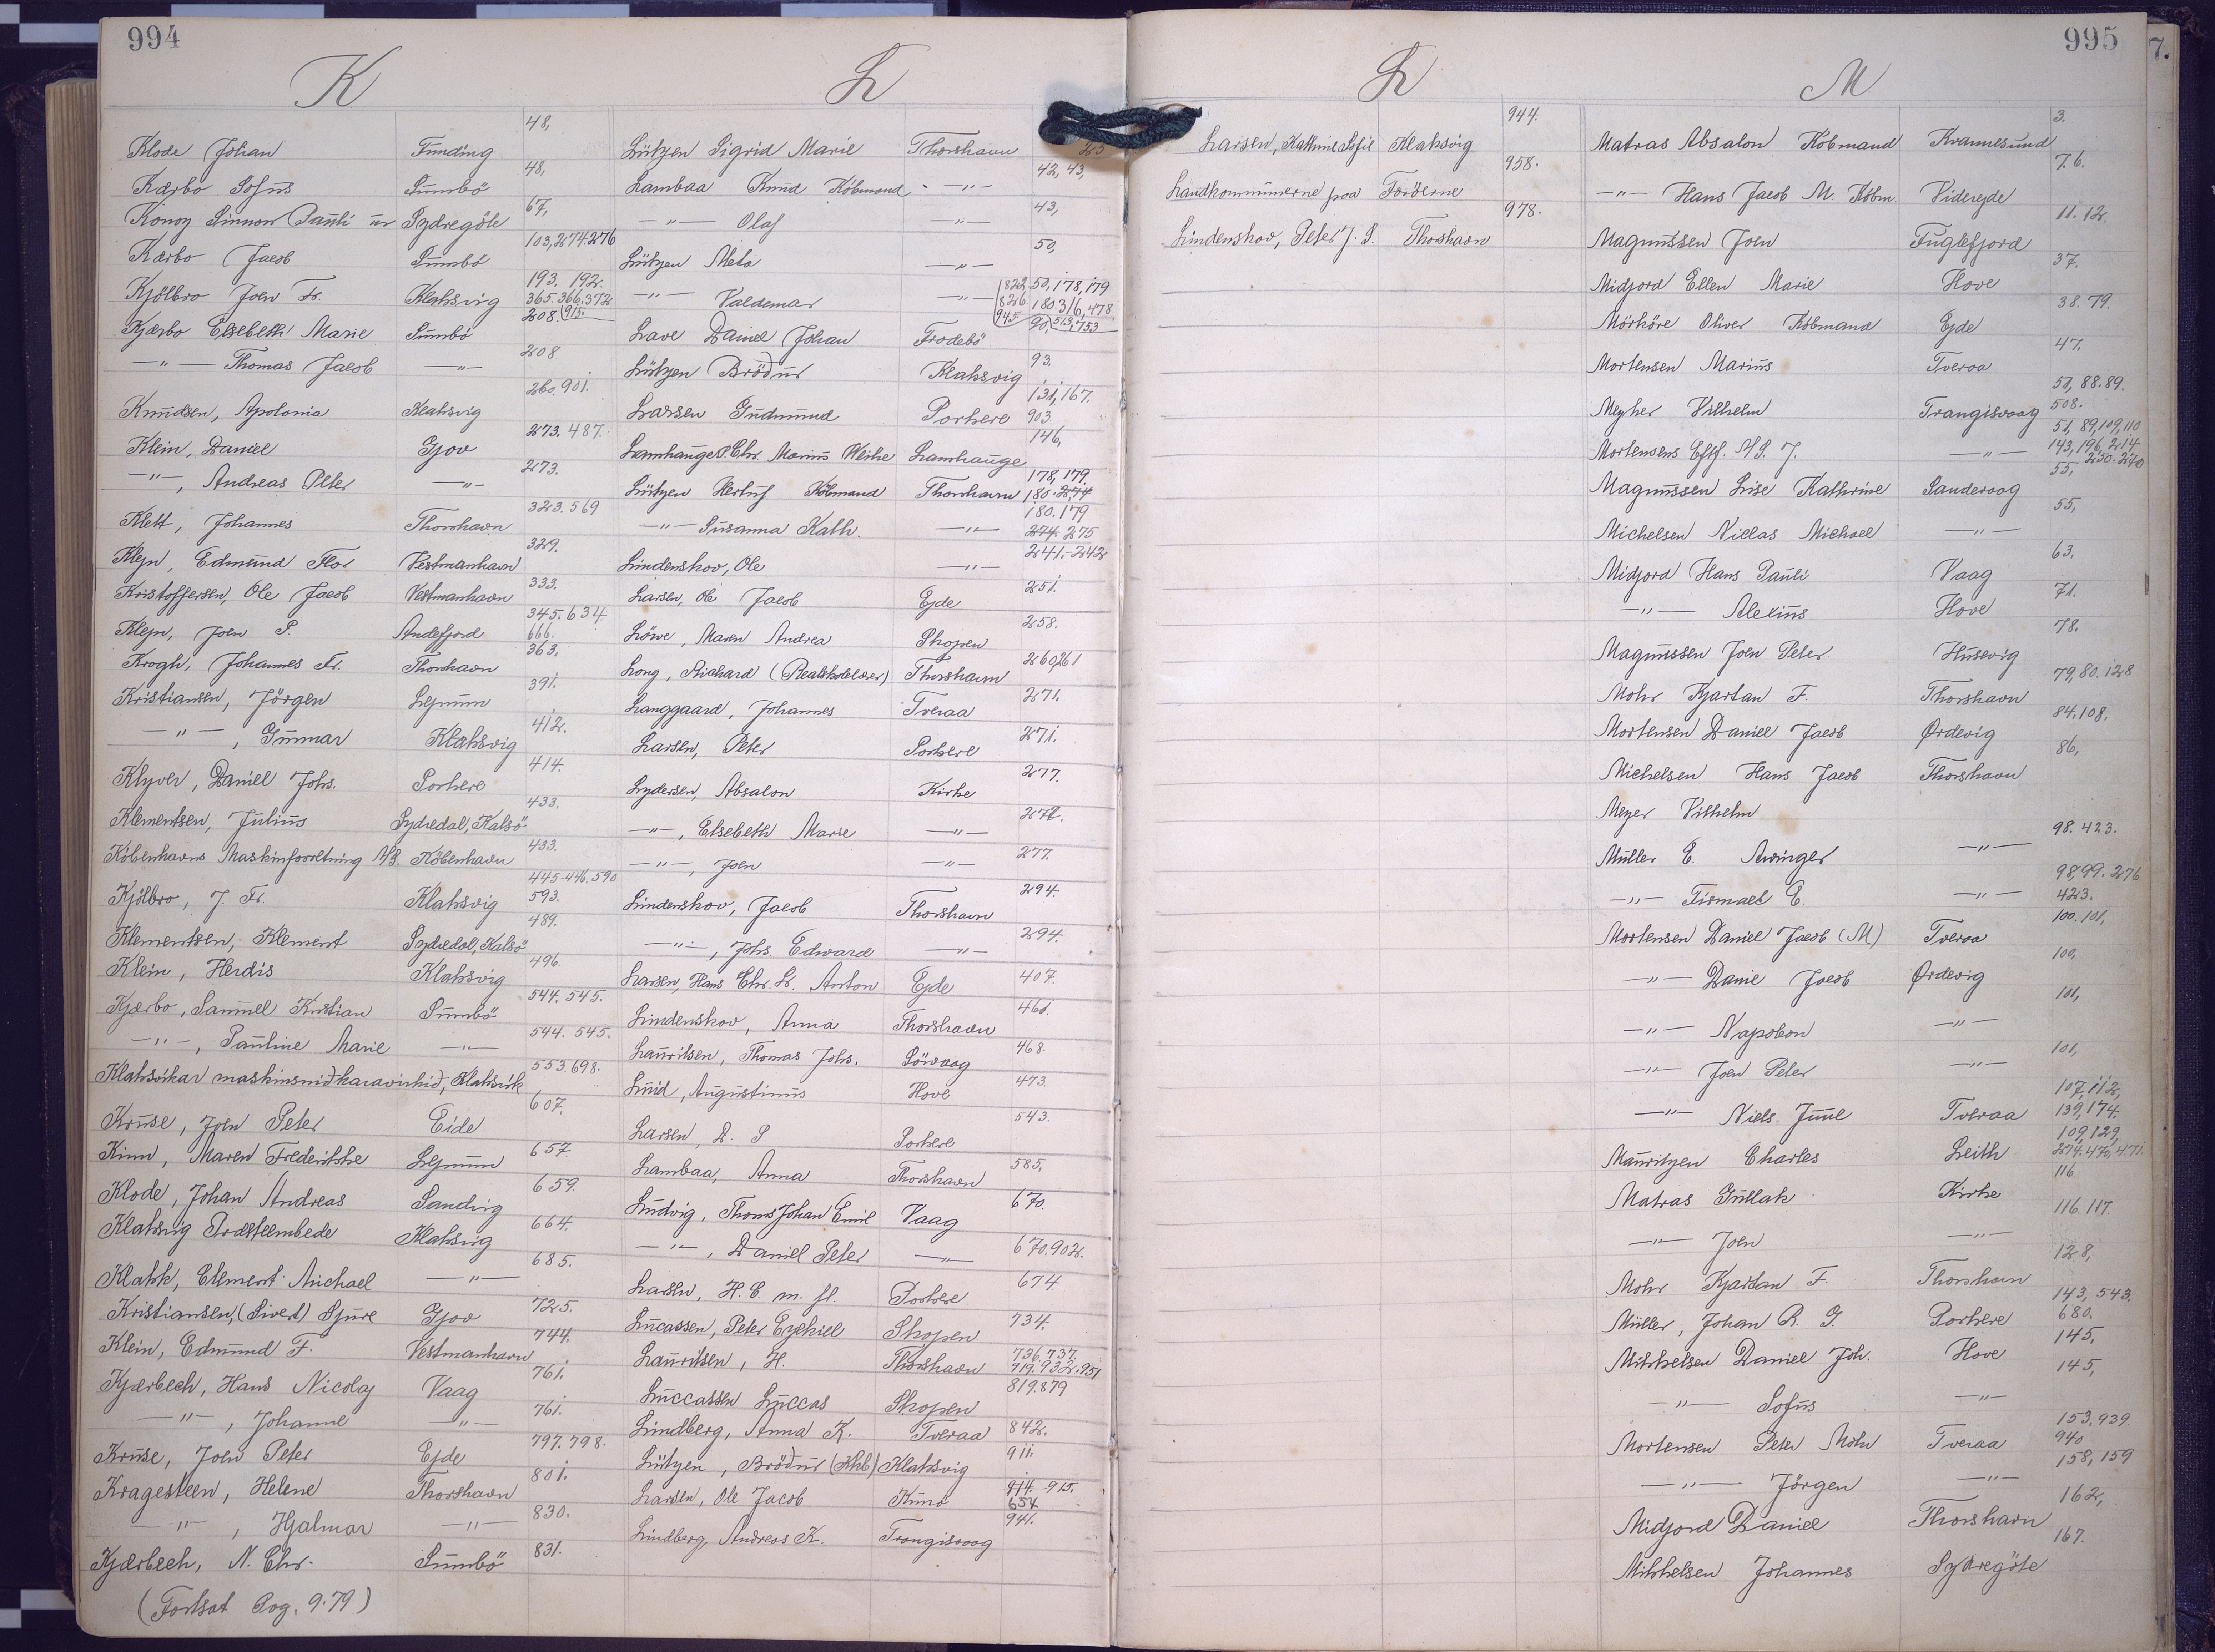 994
K
Klode Johan Funding 48,
Kærbo Sofus Sumbö 48,
Konoy Simon Pauli Sydregöte 67,
Kærbo Jacob Sumbö 103,274.276
Kjölbro Joen Fr. Klaksvig 193. 192. 365.366.372
Kjærbo Elsebeth Marie Sumbö 208. 915.
—"— Thomas Jacob —"— 208
Knudsen, Apolonia Klaksvig 260.901.
Klein, Daniel Gjov 273. 487.
—"—, Andreas Peter —"— 273.
Klett, Johannes Thorshavn 323.569
Klejn, Edmund Flor Vestmanhavn 329.
Kristoffersen, Ole Jacob Vestmanhavn 333.
Klejn, Joen P. Andefjord 345.634 666.
Krogh, Johannes Fr. Thorshavn 363.
Kristiansen, Jörgen Lejnum 391.
—"—, Gunnar Klaksvig 412.
Klyver, Daniel Johs. Porkere 414.
Klementsen, Julius Sydredal, Kalsö 433.
Københavns Maskinforretning A/S. København 433.
Kjölbro, J. Fr. Klaksvig 445-446.590 593.
Klementsen, Klement Sydredal, Kalsö 489.
Klein, Herdis Klaksvig 496.
Kjærbo, Samuel Kristian Sumbö 544. 545.
—"—, Pauline Marie —"— 544. 545.
Klaksvíkar maskinsmiðkaravirkið, Klaksvík 553.698.
Kruse, Joen Peter Eide 607.
Kinn, Maren Frederikke Lejnum 657
Klode, Johan Andreas Sandvig 659.
Klaksvig Præsteembede Klaksvig 664.
Klakk, Clement Michael —"— 685.
Kristiansen, (Sivert) Sjure Gjov 725.
Klein, Edmund F. Vestmanhavn 744.
Kjærbech, Hans Nicolaj Vaag 761.
—"—, Johanne —"— 761.
Kruse, Joen Peter Ejde 797.798.
Kragesteen, Helene Thorshavn 801.
—"—, Hjalmar —"— 830.
Kjærbech, N. Chr. Sumbö 831.
(Fortsat Pag. 979)
L
Lützen Sigrid Marie Thorshavn 25
Lambaa Knud Købmand —"— 42, 43,
—"— Olaf —"— 43,
Lützen Meta —"— 50,
—"— Valdemar —"— 822, 826 945 50,178,179 180.316,478 513,753
Lave Daniel Johan Frodebö 90,
Lützen Bröður Klaksvig 93.
Larsen Gudmund Porkere 131,167. 903
Lamhauge P Chr. Marius Weihe Lamhauge 146,
Lützen Herluf Købmand Thorshavn 178, 179. 180. 274
—"— Susanna Kath. —"— 180.179 274. 275
Lindenskov, Ole —"— 241.-242
Larsen, Ole Jacob Ejde 251.
Löwe, Maren Andrea Skopen 258.
Long, Richard (Realskolelærer) Thorshavn 260,261
Langgaard, Johannes Tveraa 271.
Larsen, Peter Porkere 271.
Lydersen, Absalon Kirke 277.
—"—, Elsebeth Marie —"— 277.
—"—, Joen —"— 277.
Lindenskov, Jacob Thorshavn 294.
—"—, Johs. Edward —"— 294.
Larsen, Hans Chr. L. Anton Ejde 407.
Lindenskov, Anna Thorshavn 461.
Lauritsen, Thomas Johs. Sörvaag 468.
Luid, Augustinus Hove 473.
Larsen, D. P Porkere 543.
Lambaa, Anna Thorshavn 585.
Ludvig, Thoms Johan Emil Vaag 670.
—"—, Daniel Peter —"— 670.902.
Larsen, H. E. m. fl. Porkere 674
Lucassen, Peter Ezekiel Skopen 734.
Lauritsen, H. Thorshavn 736.737. 919.932.951
Luccassen Luccas Skopen 819.879
Lindberg, Anna K. Tveraa 842.
Lützen, Bröður (Khb) Klaksvig 911.
Larsen, Ole Jacob Kunö 914. 915. 654
Lindberg, Andreas K. Trongisvaag 941.
995
L
Larsen, Kathrine Sofie Klaksvig 944.
Landkommunerne paa Færöerne 958.
Lindenskov, Peter J. S. Thorshavn 978.
M
Matras Absalon Købmand Kvannesund 3.
—"— Hans Jacob M. Købm. Viderejde 7.6.
Magnussen Joen Fuglefjord 11. 12.
Midjord Ellen Marie Hove 37.
Mörköre Oliver Købmand Ejde 38.79.
Mortensen Marius Tveraa 47.
Meyher Vilhelm Trangisvaag 50, 88.89. 508.
Mortensens Eftf. A/S. J. —"— 51, 89,109,110 143,196,214 250.270
Magnussen Lise Kathrine Sandevaag 55,
Michelsen Niclas Michael —"— 55,
Midjord Hans Pauli Vaag 63.
—"— Alexius Hove 71.
Magnussen Joen Peter Husevig 78.
Mohr Kjartan F. Thorshavn 79,80.128
Mortensen Daniel Jacob Ørdevig 84.108.
Michelsen Hans Jacob Thorshavn 86,
Meyer Vilhelm
Müller E. Avinger —"— 98. 423.
—"— Tismael E. —"— 98,99.276 423.
Mortensen Daniel Jacob (M) Tveraa 100.101,
—"— Daniel Jacob Ørdevig 100,
—"— Napoleon —"— 101,
—"— Joen Peter —"— 101,
—"— Niels Juul Tveraa 107,112, 139,174,
Mauritzen Charles Leith 109,129, 274.470,471.
Matras Gullak Kirke 116
—"— Joen —"— 116.117.
Mohr Kjartan F. Thorshavn 128,
Müller, Johan R. G. Porkere 143, 543. 680.
Mikkelsen Daniel Joh. Hove 145,
—"— Sofus —"— 145,
Mortensen Peter Mohr Tveraa 153.939 940
—"— Jörgen —"— 158, 159
Midjord Daniel Thorshavn 162,
Mikkelsen Johannes Sydregöte 167.
7.